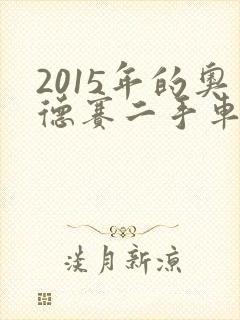 2015年的奥
德赛二手车
淡月新凉